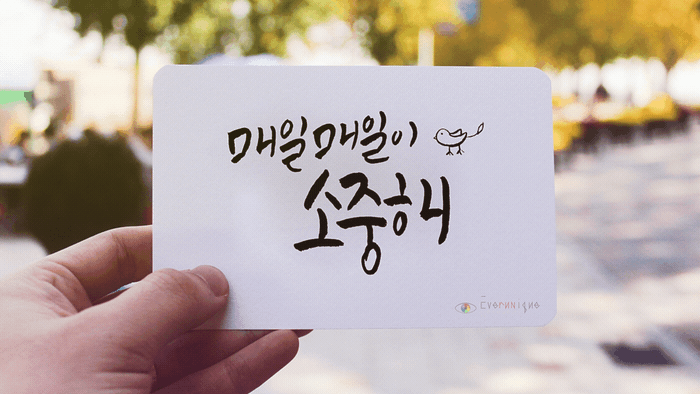 매일매일이
소중해
Everunique